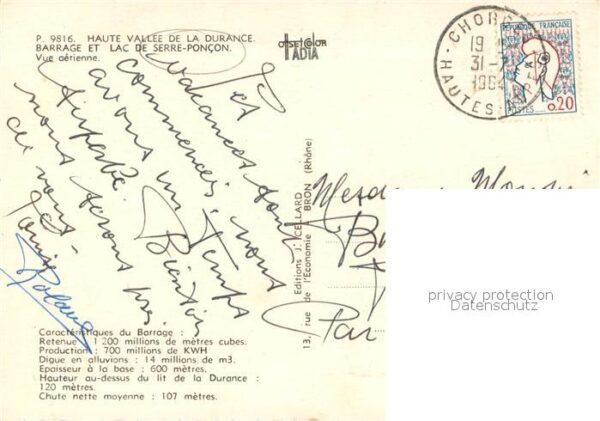 P. 9816. HAUTE VALLÉE DE LA DURANCE.
BARRAGE ET LAC DE SERRE-PONÇON.
Vue aérienne.
OFFSETCOLOR
IADIA
CHORGES
19
31-7
196
HAUTES-ALPES
REPUBLIQUE FRANÇAISE
POSTES
0,20
Les
vacances sont
commencées, nous
avons un temps
superbe. Bientôt
nous serons près
de nous.
Roland
Editions J. CELLARD
13, rue de l'Economie à BRON (Rhône)
Mesd
Par
privacy protection
Datenschutz
Caractéristiques du Barrage :
Retenue : 1 200 millions de mètres cubes.
Production : 700 millions de KWH
Digue en alluvions : 14 millions de m3.
Epaisseur à la base : 600 mètres.
Hauteur au-dessus du lit de la Durance :
120 mètres.
Chute nette moyenne : 107 mètres.